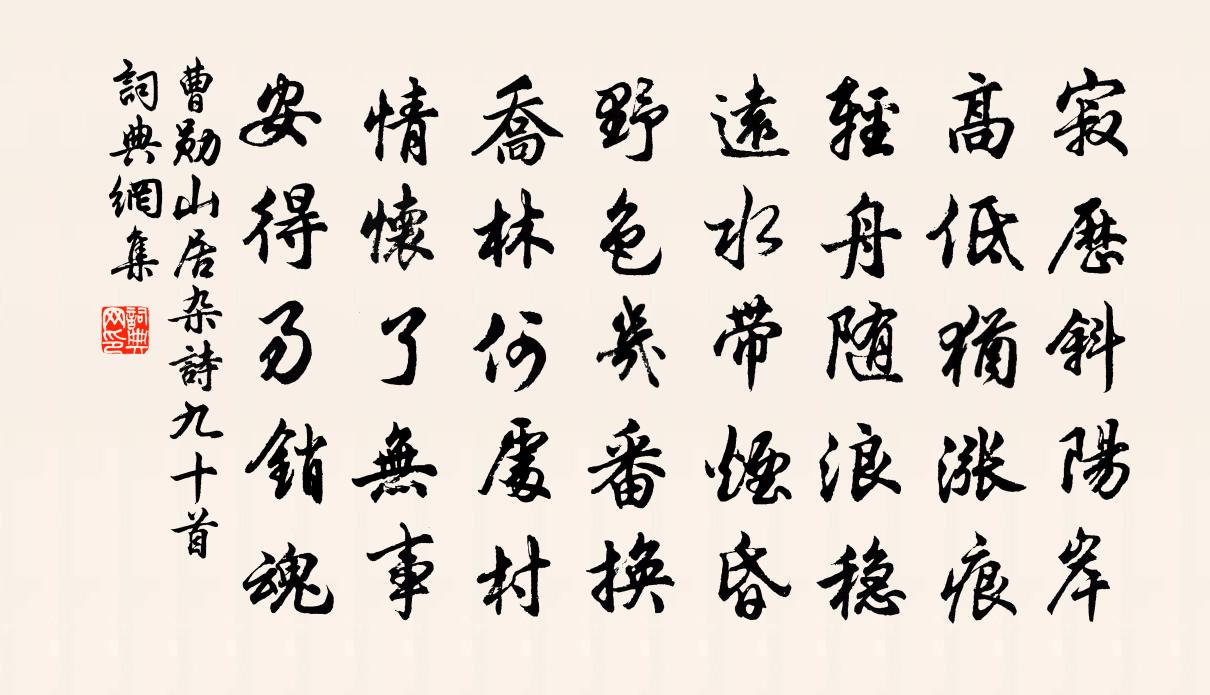 寂歷斜陽岸
高低猶漲痕
輕舟随浪穏
遠水帶煙昏
野色幾番換
喬林何處村
情懷了無事
安得易銷魂
曹勛山居杂詩九十首
詞典網集
詞典
网印